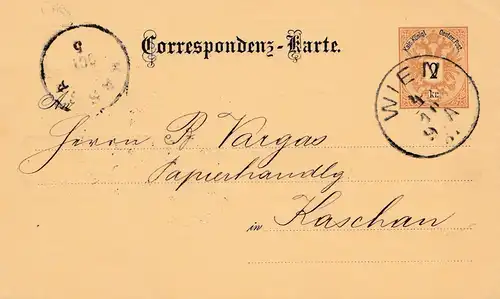 Correspondenz-Karte.
Kais. Königl. Oesterr. Post.
2
kr.
WIEN
An
Herrn B Vargas
Papierhandlg
in Kaschau